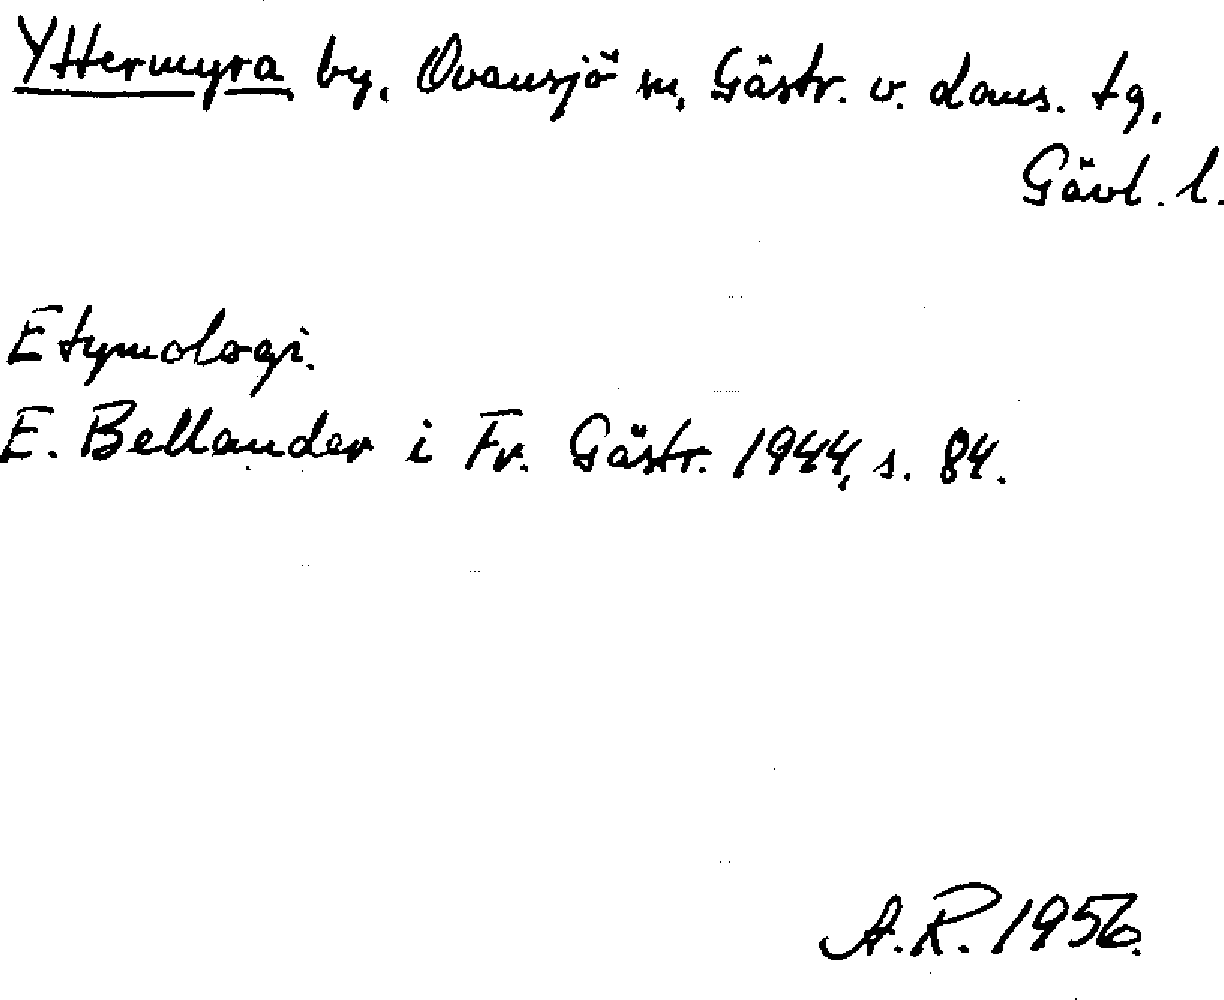 Yttermyra by, Ovansjö sn, Gästr. v. doms. tg,
Gävl. l.
Etymologi.
E. Bellander i Fr. Gästr. 1944, s. 84.
A.R. 1956.